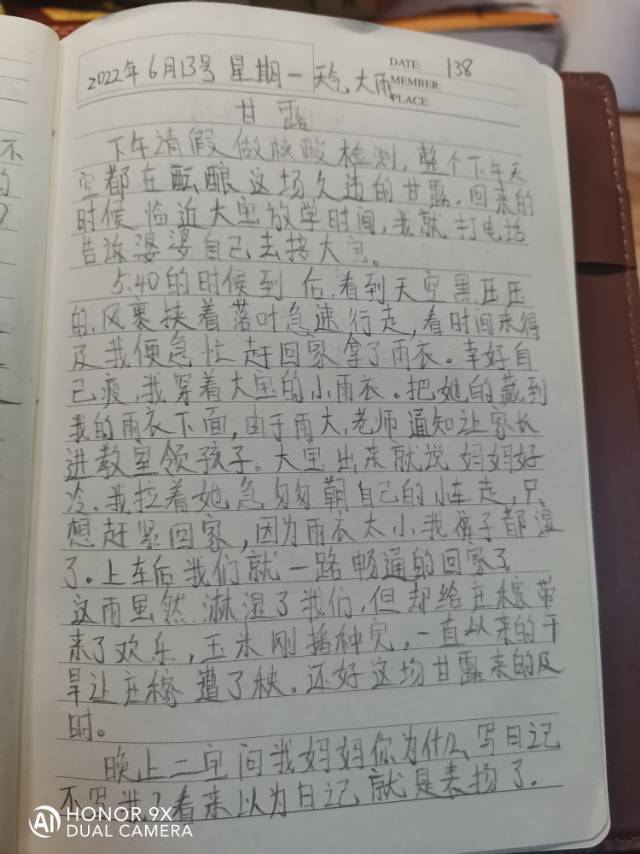 2022年6月13号 星期一 天气 大雨
DATE: 138
MEMBER:
PLACE:
甘露
下午请假做核酸检测，整个下午天
空都在酝酿这场久违的甘露。回来的
时候 临近大宝放学时间，我就打电话
告诉婆婆自己去接大宝。
5:40的时候到后，看到天空黑压压
的，风裹挟着落叶急速行走，看时间来得
及我便急忙赶回家拿了雨衣。幸好自
己瘦，我穿着大宝的小雨衣。把她的藏到
我的雨衣下面，由于雨大，老师通知让家长
进教室领孩子。大宝出来就说妈妈好
冷。我拉着她急匆匆朝自己的小车走，只
想赶紧回家，因为雨衣太小，我裤子都湿
了。上车后我们就一路畅通的回家了
这雨虽然淋湿了我们，但却给庄稼带
来了欢乐，玉米刚播种完，一直以来的干
旱让庄稼遭了秧。还好这场甘露来的及
时。
晚上二宝问我妈妈你为什么写日记
不写我？看来以为日记就是表扬了。
HONOR 9X
AI DUAL CAMERA
不
的